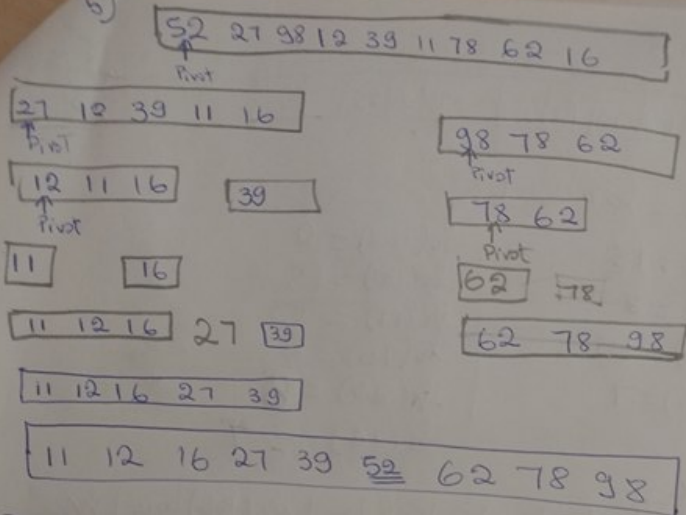 b)
52 27 98 12 39 11 78 62 16
Pivot
27 12 39 11 16
Pivot
98 78 62
Pivot
12 11 16 39
Pivot
78 62
Pivot
11 16
62 78
11 12 16 27 39
62 78 98
11 12 16 27 39
11 12 16 27 39 52 62 78 98